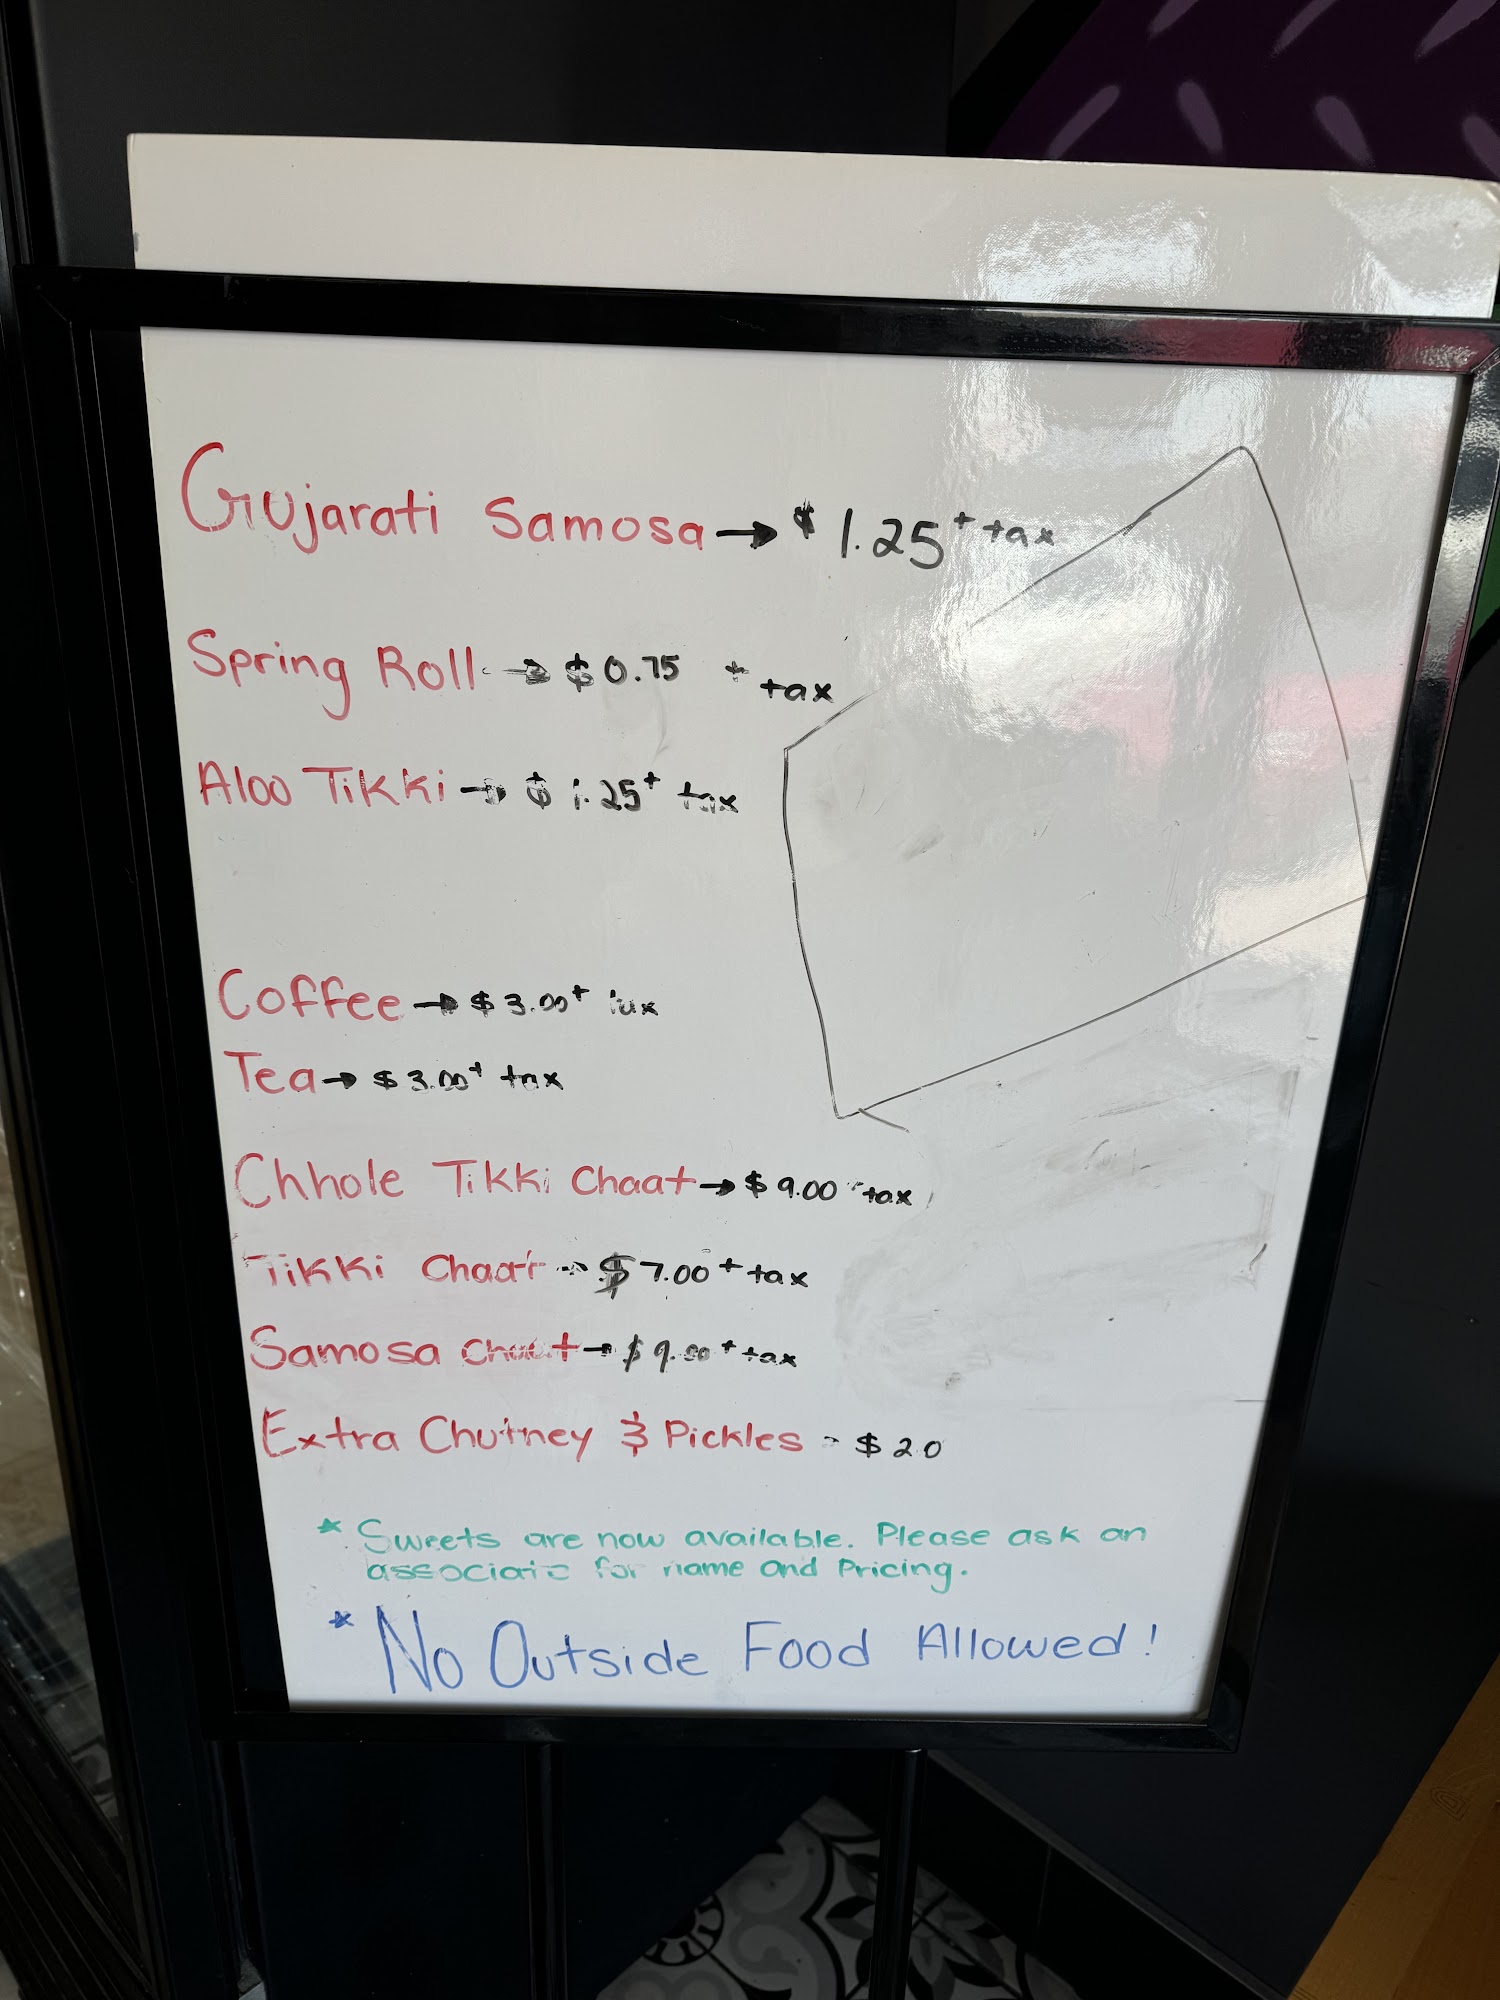 Gujarati Samosa → $ 1.25 + tax
Spring Roll → $ 0.75 + tax
Aloo Tikki → $ 1.25 + tax
Coffee → $ 3.00 + tax
Tea → $ 3.00 + tax
Chhole Tikki Chaat → $ 9.00 + tax
Tikki Chaat → $ 7.00 + tax
Samosa Chaat → $ 9.00 + tax
Extra Chutney & Pickles - $ 2.0
* Sweets are now available. Please ask an
associate for name and Pricing.
* No Outside Food Allowed!